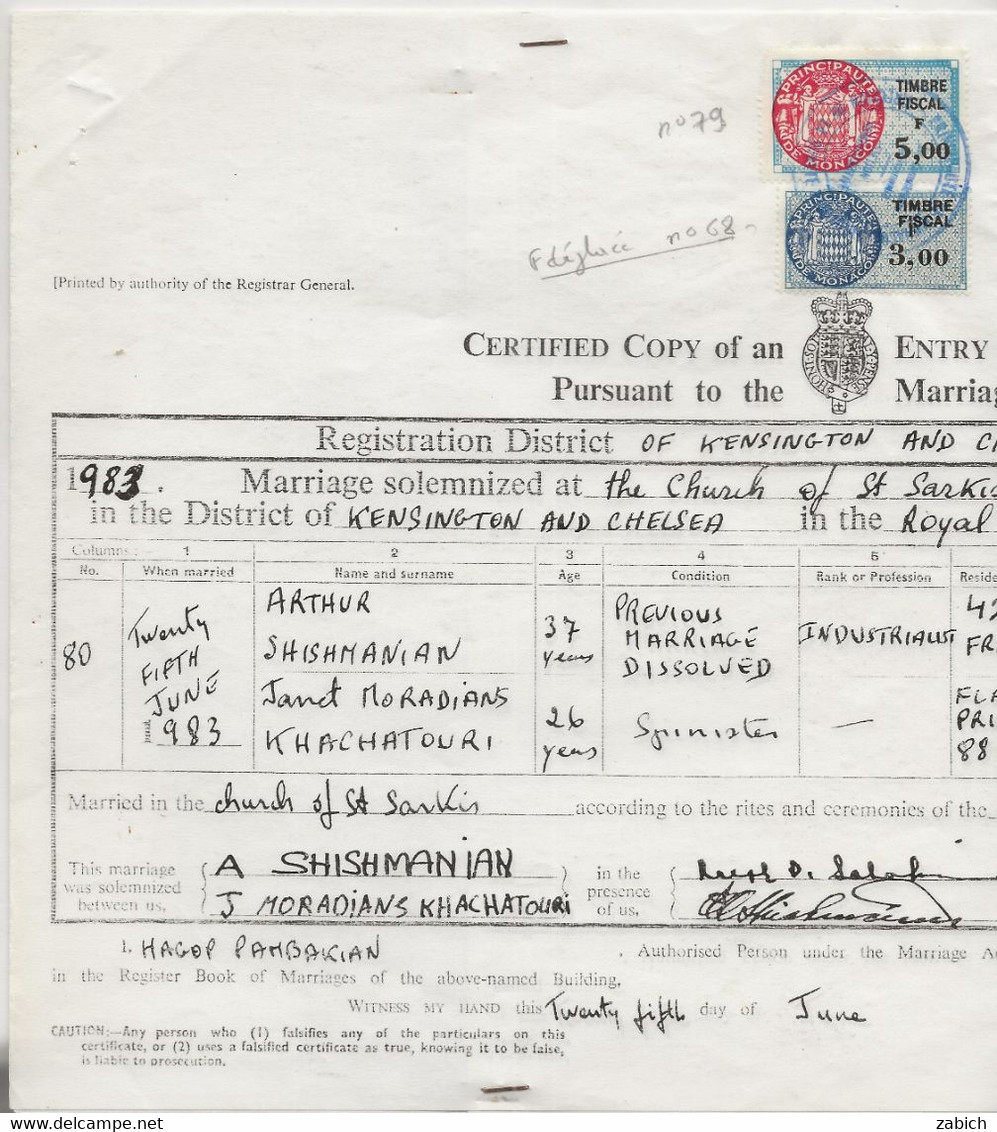 PRINCIPAUTE DE MONACO
TIMBRE
FISCAL
F
5,00
n° 79
PRINCIPAUTE DE MONACO
TIMBRE
FISCAL
F
3,00
n° 68
[Printed by authority of the Registrar General.
CERTIFIED COPY of an ENTRY
Pursuant to the Marriag
Registration District OF KENSINGTON AND C
1983. Marriage solemnized at the Church of St Sarkis
in the District of KENSINGTON AND CHELSEA in the Royal
Columns:— 1 2 3 4 5
No. When married Name and surname Age Condition Rank or Profession Reside
80 Twenty FIFTH JUNE 1983
ARTHUR SHISHMANIAN 37 years PREVIOUS MARRIAGE DISSOLVED INDUSTRIALIST 42 FR
Janet MORADIANS KHACHATOURI 26 years Spinster — FLA PRI 88
Married in the church of St Sarkis according to the rites and ceremonies of the
This marriage was solemnized between us, A SHISHMANIAN J MORADIANS KHACHATOURI in the presence of us,
I, HAGOP PAMBAKIAN, Authorised Person under the Marriage A
in the Register Book of Marriages of the above-named Building.
WITNESS MY HAND this Twenty fifth day of June
CAUTION:—Any person who (1) falsifies any of the particulars on this
certificate, or (2) uses a falsified certificate as true, knowing it to be false,
is liable to prosecution.
delcampe.net
zabich